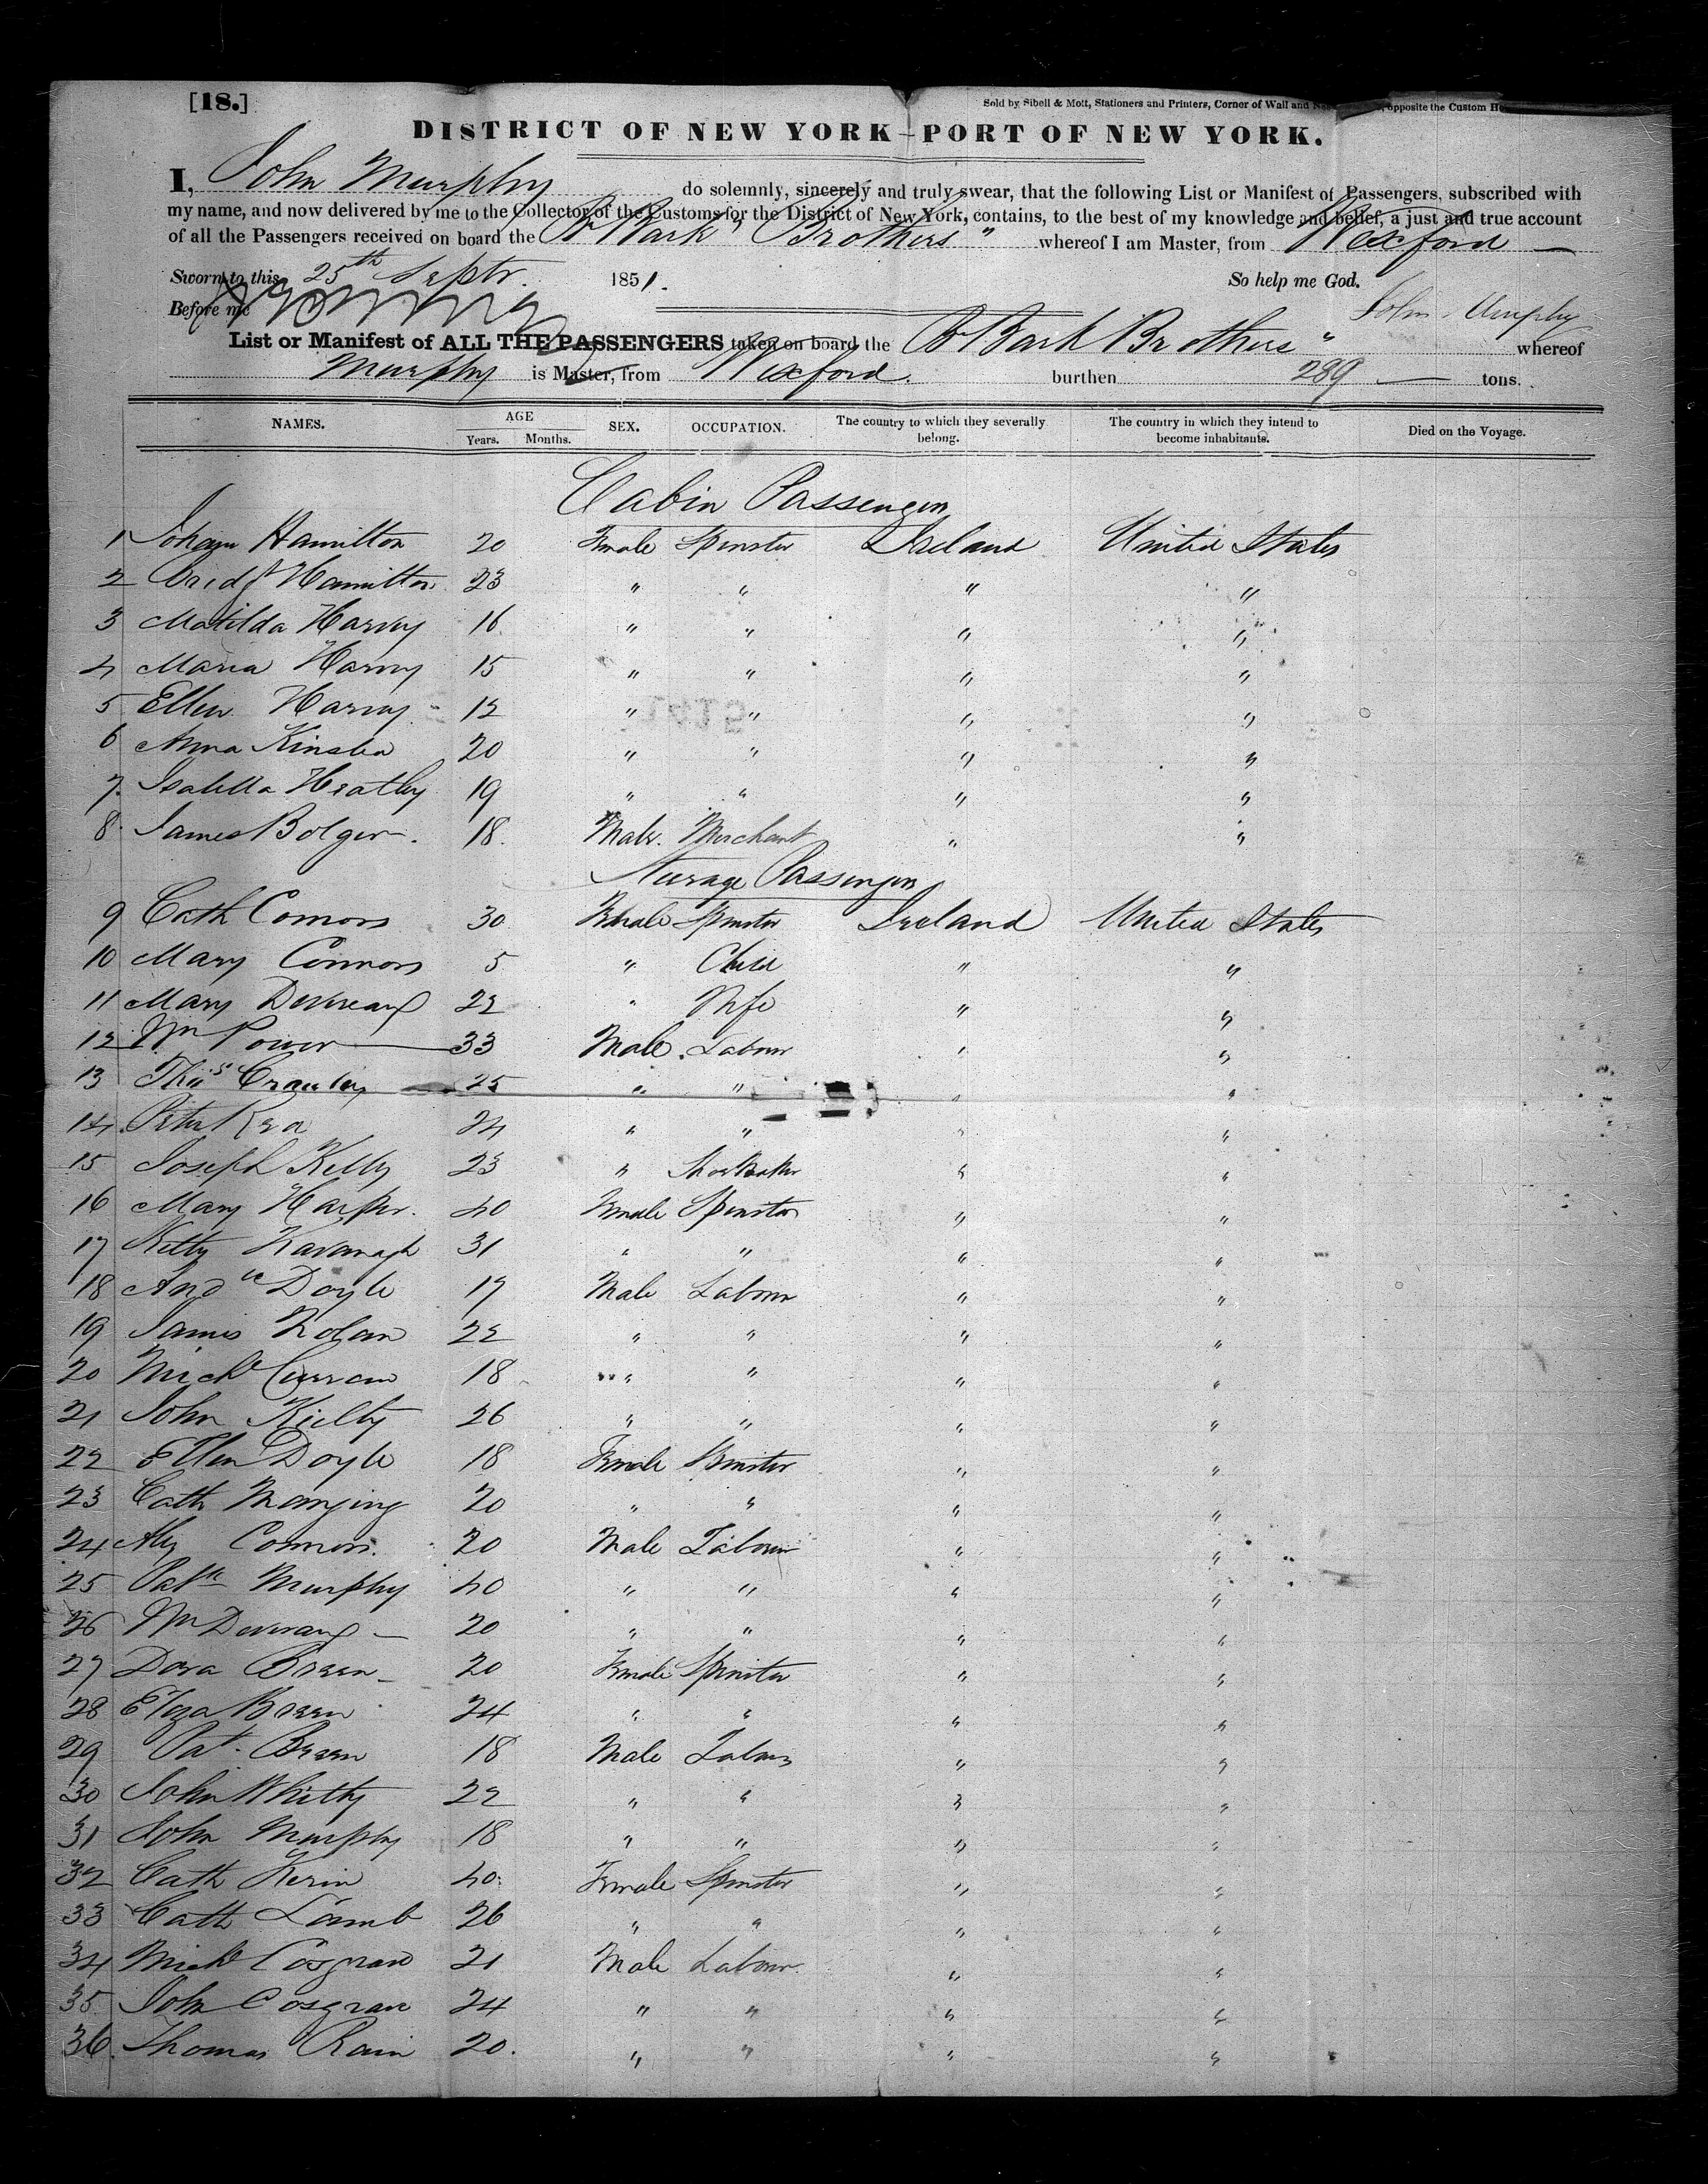 [18.]
Sold by Sibell & Mott, Stationers and Printers, Corner of Wall and opposite the Custom
DISTRICT OF NEW YORK–PORT OF NEW YORK.
I, John Murphy do solemnly, sincerely and truly swear, that the following List or Manifest of Passengers, subscribed with
my name, and now delivered by me to the Collector of the Customs for the District of New York, contains, to the best of my knowledge and belief, a just and true account
of all the Passengers received on board the Br Bark "Brothers" whereof I am Master, from Wexford
Sworn to this 25th Septr. 1851. So help me God.
Before me John Murphy
List or Manifest of ALL THE PASSENGERS taken on board the Br Bark Brothers" whereof
Murphy is Master, from Wexford. burthen 289 tons.
NAMES. AGE Years. Months. SEX. OCCUPATION. The country to which they severally belong. The country in which they intend to become inhabitants. Died on the Voyage.
Cabin Passengers
1 Hamilton 20 Female Spinster Ireland United States
2 Bridgt Hamilton 23 " " " "
3 Matilda Harvey 16 " " " "
4 Maria Harvey 15 " " " "
5 Ellen Harvey 12 " " " "
6 Anna Kinsela 20 " " " "
7 Isabella Heatley 19 " " " "
8 James Bolger. 18. Male. Merchant " "
Steerage Passengers
9 Cath Connors 30 Female Spinster Ireland United States
10 Mary Connors 5 " Child " "
11 Mary Devereaux 22 " Wife " "
12 Wm Power 33 Male. Labour " "
13 Thos Crawley 25 " " " "
14 Peter Rea 24 " " " "
15 Joseph Kelly 23 " Shoe Maker " "
16 Mary Harper. 40 Female Spinster " "
17 Kitty Kavanagh 31 " " " "
18 Andw Doyle 17 Male Labour " "
19 James Nolan 22 " " " "
20 Michl Curran 18 " " " "
21 John Kielty 26 " " " "
22 Ellen Doyle 18 Female Spinster " "
23 Cath 20 " " " "
24 Connors. 20 Male Labour " "
25 Patk Murphy 40 " " " "
26 Wm Deveraux 20 " " " "
27 Dora Breen 20 Female Spinster " "
28 Eliza Breen 24 " " " "
29 Pat. Breen 18 Male Labour " "
30 John Whitty 22 " " " "
31 John Murphy 18 " " " "
32 Cath Kerin 40. Female Spinster " "
33 Cath Lamb 26 " " " "
34 Michl Cosgrave 21 Male Labour " "
35 John Cosgrave 24 " " " "
36. Thomas Rain 20. " " " "